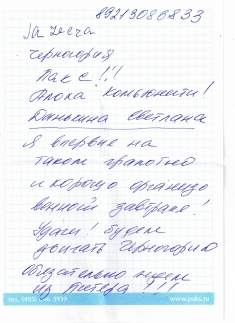 89219086833
за честь
Черногория
Пакс!!!
Алока комьюнити!
Данькина Светлана
Я впервые на
таком грамотно
и хорошо организо
ванном завтраке!
Удачи! будем
двигать Черногорию
обязательно ждем
из Питера!!!
тел. (495) 3939
www.paks.ru